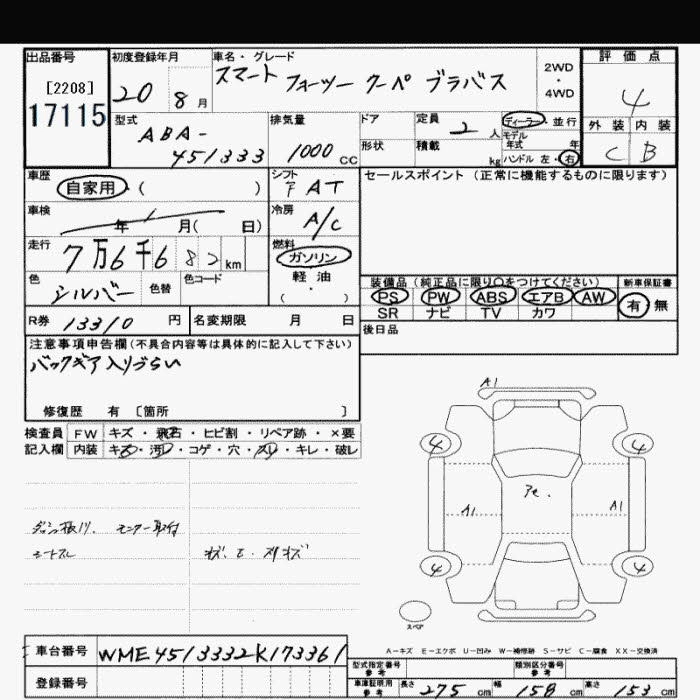 出品番号 初度登録年月 車名・グレード 評価点
[2208] 17115
20 8月
スマート フォーツー クーペ ブラバス
2WD ・ 4WD
4
型式 排気量 ドア 定員 ディーラー・並行 外装 内装
ABA-451333 1000cc 2人 モデル年式 年 C B
形状 積載 kg ハンドル 左・右
車歴 自家用・( )
シフト FAT
セールスポイント(正常に機能するものに限ります)
車検 年 月( 日)
冷房 A/C
走行 7万6千682km
燃料 ガソリン 軽油 ・ ( )
色 シルバー 色替 色コード
装備品(純正品に限り○をつけてください) 新車保証書
PS PW ABS エアB AW 有 無
SR ナビ TV カワ
R券 13310円 名変期限 月 日
後日品
注意事項申告欄(不具合内容等は具体的に記入して下さい)
バックギア入りづらい
修復歴 有 [箇所 ]
検査員 FW キズ・飛石・ヒビ割・リペア跡・×要
記入欄 内装 キズ・汚レ・コゲ・穴・スレ・キレ・破レ
モニター取付
シートスレ
A1
4 4
A1 A1
4 4
スペア
A-キズ E-エクボ U-凹み W-補修跡 S-サビ C-腐食 XX-交換済
車台番号 WME4513332K173361
登録番号
型式指定番号 参考 類別区分番号 参考
車庫証明用 参考 長さ 275cm 幅 158cm 高さ 153cm